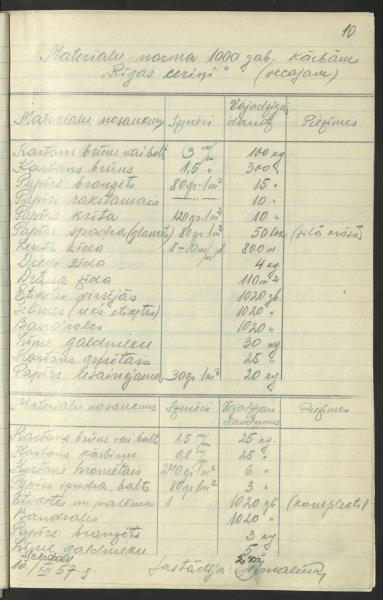 10
Materialu norma 1000 gab. kārbām
"Rīgas ceriņi" (vecajam)
Materialu nosaukums Izmēri Vajadzīgais daudz. Piezīmes
Kartons brūns vai balt 3 m/m 100 kg
Kartons brūns 1,5 " 300 "
Papīrs bronzēts 80 gr/m² 15 "
Papīrs rakstamais — " — 10 "
Papīrs krīta 120 gr/m² 10 "
Papīrs spodrs (glancēts) 80 gr/m² 50 loks
Lenta zīda 8-10 m/m 800 m.
Diegi zīda 4 kg
Drāna zīda 110 m²
Etiķete 1020 gb.
(vēs etiķetes) 1020 "
Banderoles 1020 "
Līme galdnieku 30 kg
Kartons gofrētais 25 "
Papīrs iesaiņojamais 30 gr/m² 20 kg
Materialu nosaukums Izmēri Vajadzīgais daudzums Piezīmes
Kartons brūns vai balt 1,5 m/m 25 kg
Kartons kārbiņu 0,8 m/m 25 "
Kartons hromētais 240 gr/m² 6 "
Papīrs spodrs balts 80 gr/m² 3 "
Etiķetes un 1 1020 gb (komplekts)
Banderoles 1020 "
Papīrs bronzēts 3 kg
Līme galdnieku 5 "
10/XII 57 g. Sastādīja